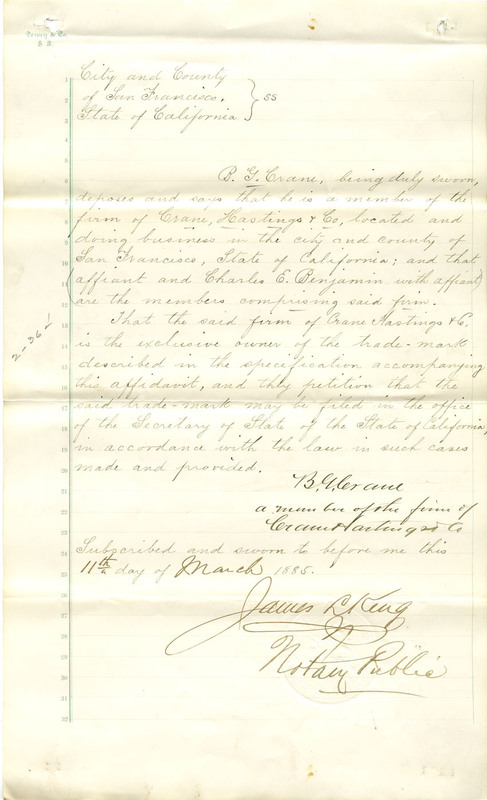 City and County
of San Francisco, } ss
State of California
B. G. Crane, being duly sworn,
deposes and says that he is a member of the
firm of Crane, Hastings & Co, located and
doing business in the city and county of
San Francisco, State of California; and that
affiant and Charles E. Benjamin with affiant
are the members comprising said firm.
That the said firm of Crane Hastings & C.
is the exclusive owner of the trade-mark
described in the specification accompanying
this affidavit, and they petition that the
said trade-mark may be filed in the office
of the Secretary of State of the State of California,
in accordance with the law in such cases
made and provided.
B. G. Crane
a member of the firm of
Crane Hastings & Co
Subscribed and sworn to before me this
11th day of March 1885.
James L King
Notary Public
1
2
3
4
5
6
7
8
9
10
11
12
13
14
15
16
17
18
19
20
21
22
23
24
25
26
27
28
29
30
31
32